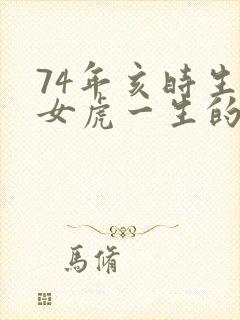 74年亥時生
女虎一生的
馬脩